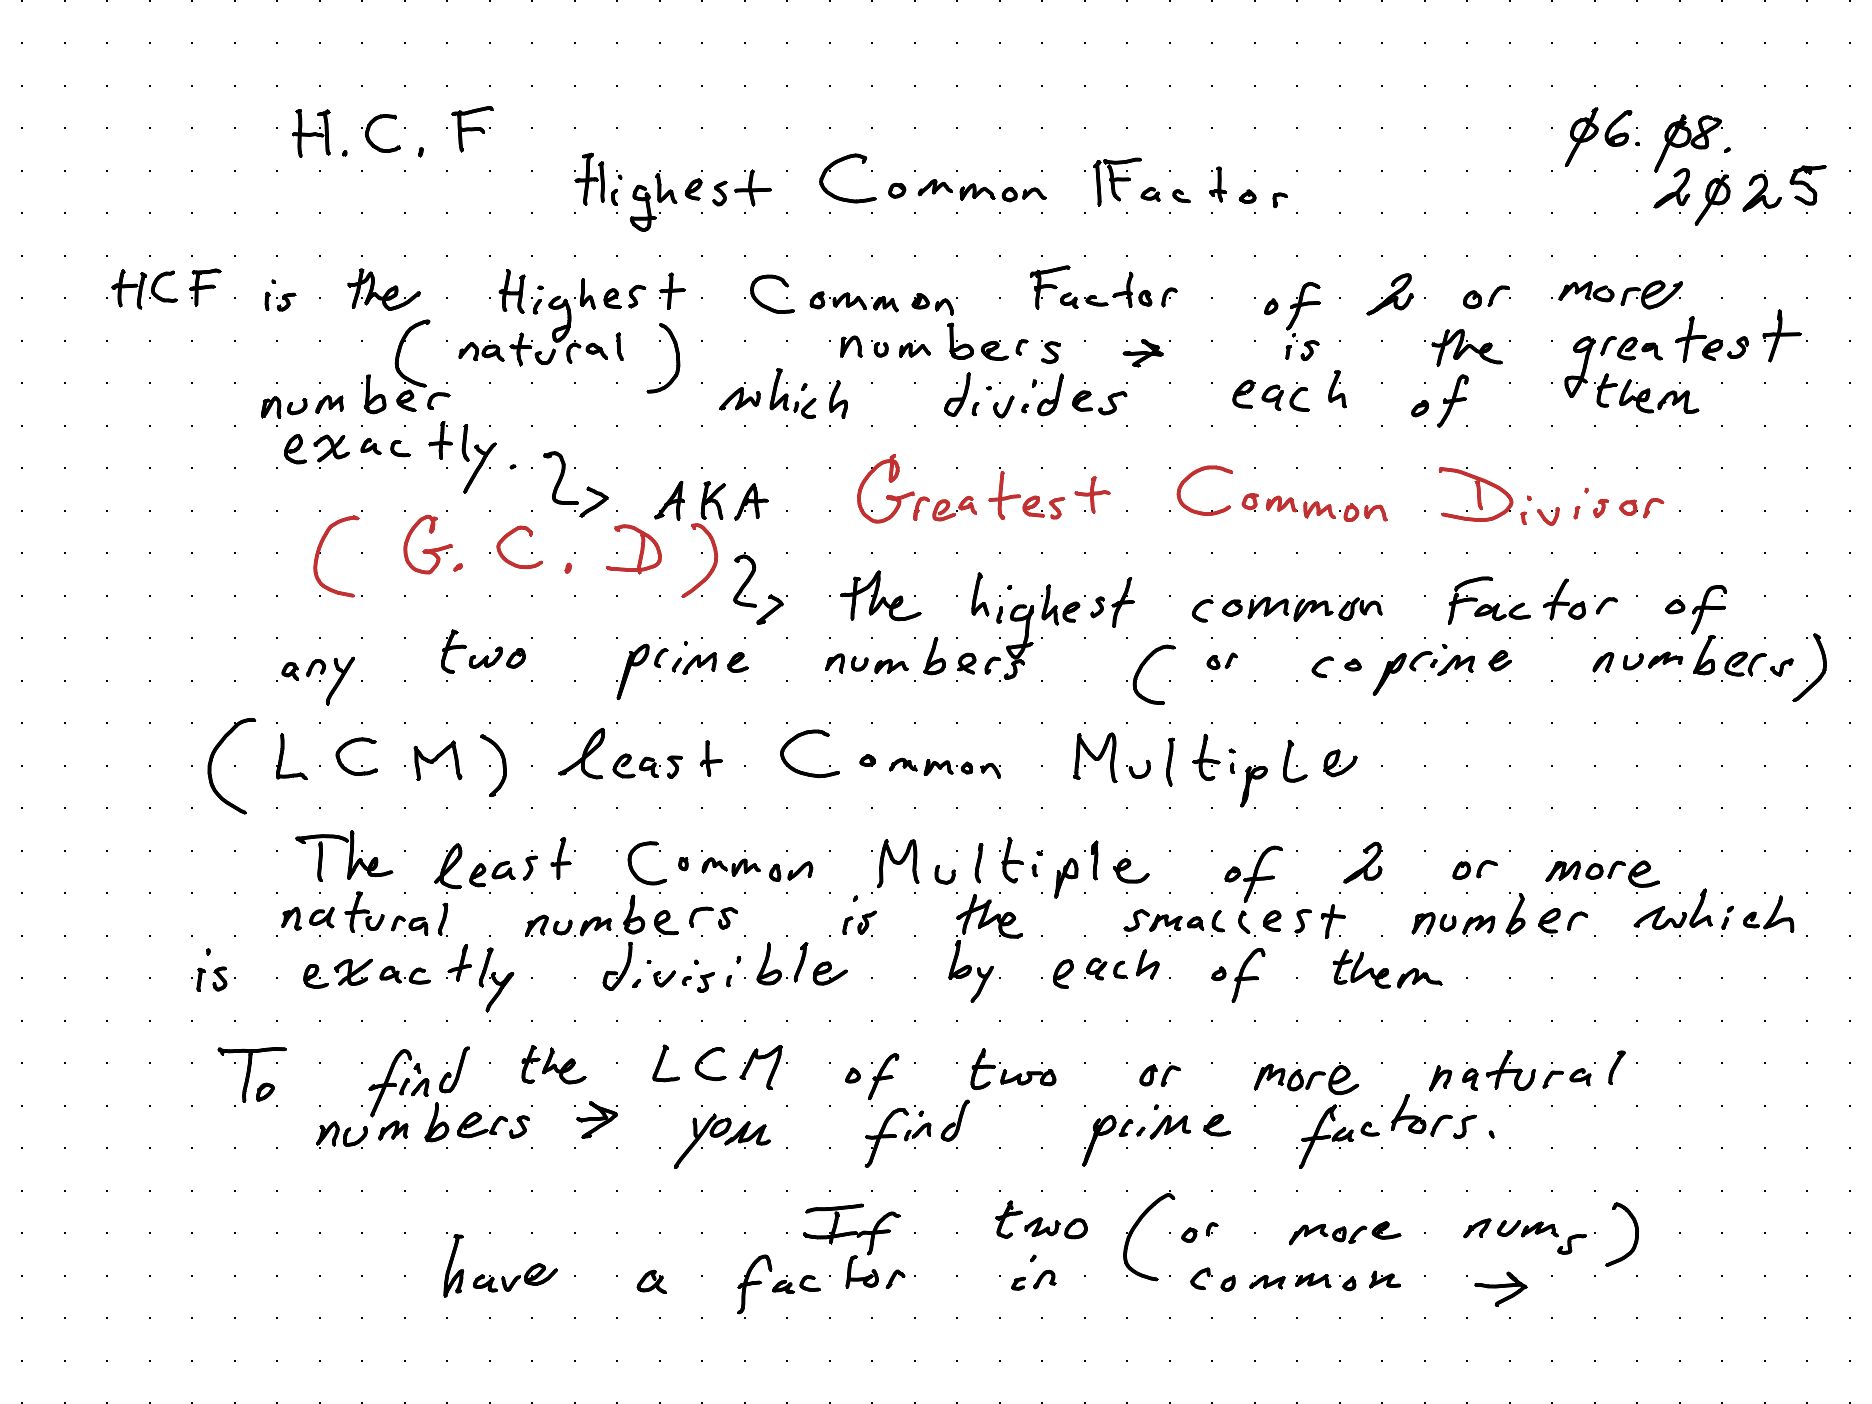 H.C.F
Ø6.Ø8.
2Ø25
Highest Common Factor
HCF is the Highest Common Factor of 2 or more
(natural) numbers → is the greatest
number which divides each of them
exactly.
↳ AKA Greatest Common Divisor
(G.C.D)
↳ the highest common Factor of
any two prime numbers (or coprime numbers)
(LCM) least Common Multiple
The least Common Multiple of 2 or more
natural numbers is the smallest number which
is exactly divisible by each of them
To find the LCM of two or more natural
numbers → you find prime factors.
If two (or more nums)
have a factor in common →